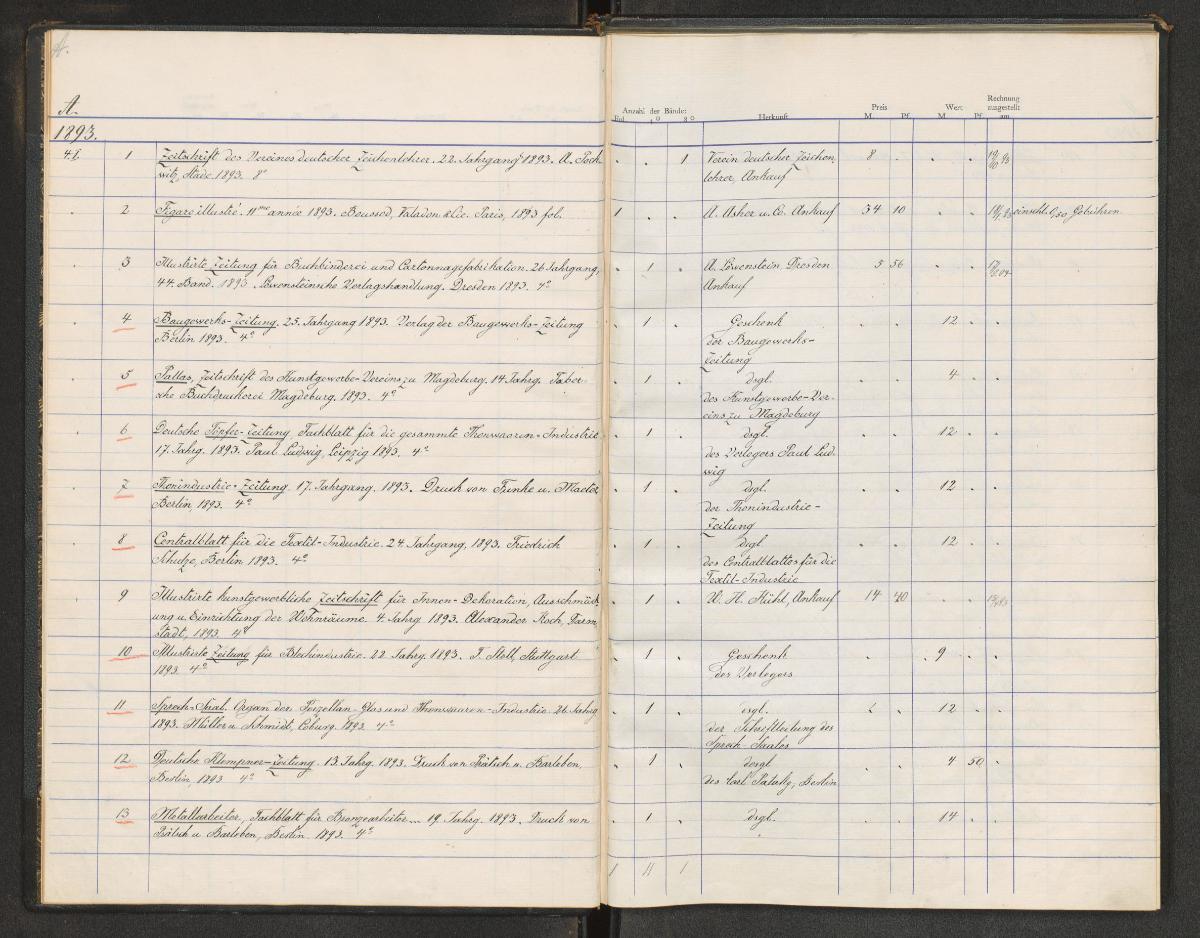 A.
A.
Anzahl der Bände:
Preis
Wert
Rechnung
ausgestellt
am
Fol. 4° 8°
Herkunft
M. Pf.
M. Pf.
1893.
4.I. 1 Zeitschrift des Vereines deutscher Zeichenlehrer. 22. Jahrgang 1893. A. Poch
. . 1 Verein deutscher Zeichen
8 . . .
witz, Stade. 1893. 8°
lehrer, Ankauf
. 2 Figaro illustré. 11me année 1893. Boussod, Valadon & Cie. Paris, 1893 fol.
1 . . A. Asher u. Co. Ankauf 34 10 . . einschl. 0,50 Gebühren
. 3 Illustrirte Zeitung für Buchbinderei und Cartonnagefabrikation. 26 Jahrgang,
. 1 . A. Löwenstein Dresden 5 56 . .
44. Band. 1893. Löwensteinsche Verlagshandlung. Dresden 1893. 4°
Ankauf
. 4 Baugewerks-Zeitung. 25. Jahrgang 1893. Verlag der Baugewerks-Zeitung
. 1 . Geschenk . . 12 . .
Berlin 1893. 4°
der Baugewerks-
Zeitung
. 5 Pallas, Zeitschrift des Kunstgewerbe-Vereins zu Magdeburg. 14 Jahrg. Faber
. 1 . dsgl. . . 4 . .
sche Buchdruckerei Magdeburg. 1893. 4°
des Kunstgewerbe-Ver-
eins zu Magdeburg
. 6 Deutsche Töpfer-Zeitung. Fachblatt für die gesammte Thonwaaren-Industrie
. 1 . dsgl. . . 12 . .
17. Jahrg. 1893. Paul Ludwig, Leipzig 1893. 4°
des Verlegers Paul Lud
wig
. 7 Thonindustrie-Zeitung. 17. Jahrgang. 1893. Druck von Funke u.
. 1 . dsgl. . . 12 . .
Berlin, 1893. 4°
der Thonindustrie-
Zeitung
. 8 Centralblatt für die Textil-Industrie. 24. Jahrgang, 1893. Friedrich
. 1 . dsgl. . . 12 . .
Schulze, Berlin 1893. 4°
des Centralblattes für die
Textil-Industrie
9 Illustrirte kunstgewerbliche Zeitschrift für Innen-Dekoration, Ausschmück-
. 1 . W. H. Kühl, Ankauf 14 40 . .
ung u. Einrichtung der Wohnräume. 4. Jahrg. 1893. Alexander Koch, Darm
stadt, 1893. 4°
10 Illustrirte Zeitung für Blechindustrie. 22. Jahrg. 1893. F. Stoll, Stuttgart
. 1 . Geschenk . 9 . .
1893. 4°
des Verlegers
11 Sprech-Saal. Organ der Porzellan-Glas und Thonwaaren-Industrie. 26. Jahrg
. 1 . dsgl. . . 12 . .
1893. Müller u. Schmidt, Coburg. 1893. 4°
der Schriftleitung des
Sprech-Saales
12 Deutsche Klempner-Zeitung. 13. Jahrg. 1893. Druck von Pätsch u. Barleben,
. 1 . desgl . . 4 50 .
Berlin, 1893 4°
des Carl Pataky, Berlin
13 Metallarbeiter, Fachblatt für Bronzearbeiter... 19. Jahrg. 1893. Druck von
. 1 . dsgl. . . 14 . .
Pätsch u. Barleben, Berlin. 1893. 4°
1 11 1